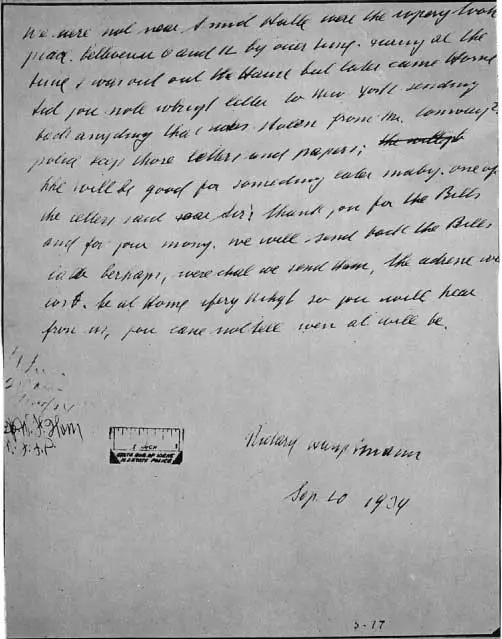 We were not near Smid Halle were the ropery took
place between 6 and 12 by our time. During all the
time I was out out the House but later came Home.
Did you note wrighte letter to New York sending
back anyding that was stolen from Mr. Conway?
police keeps those letters and papers; the
will be good for someding later maby. one of
the letters said Dear Sir! thank you for the Bills
and for your mony. We will send back the Bills
later Perhaps, were shal we send them, the adress we
lost. be at Home every Night so you will hear
from us, you cane not tell wen at will be.
1 INCH
STATE POLICE
Richard Hauptmann
Sep. 20 1934
S-17